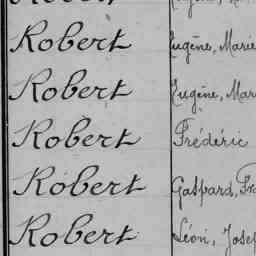 Robert Eugène, Marie
Robert Eugène, Mar
Robert Frédéric
Robert Gaspard, Fra
Robert Léon, Josep